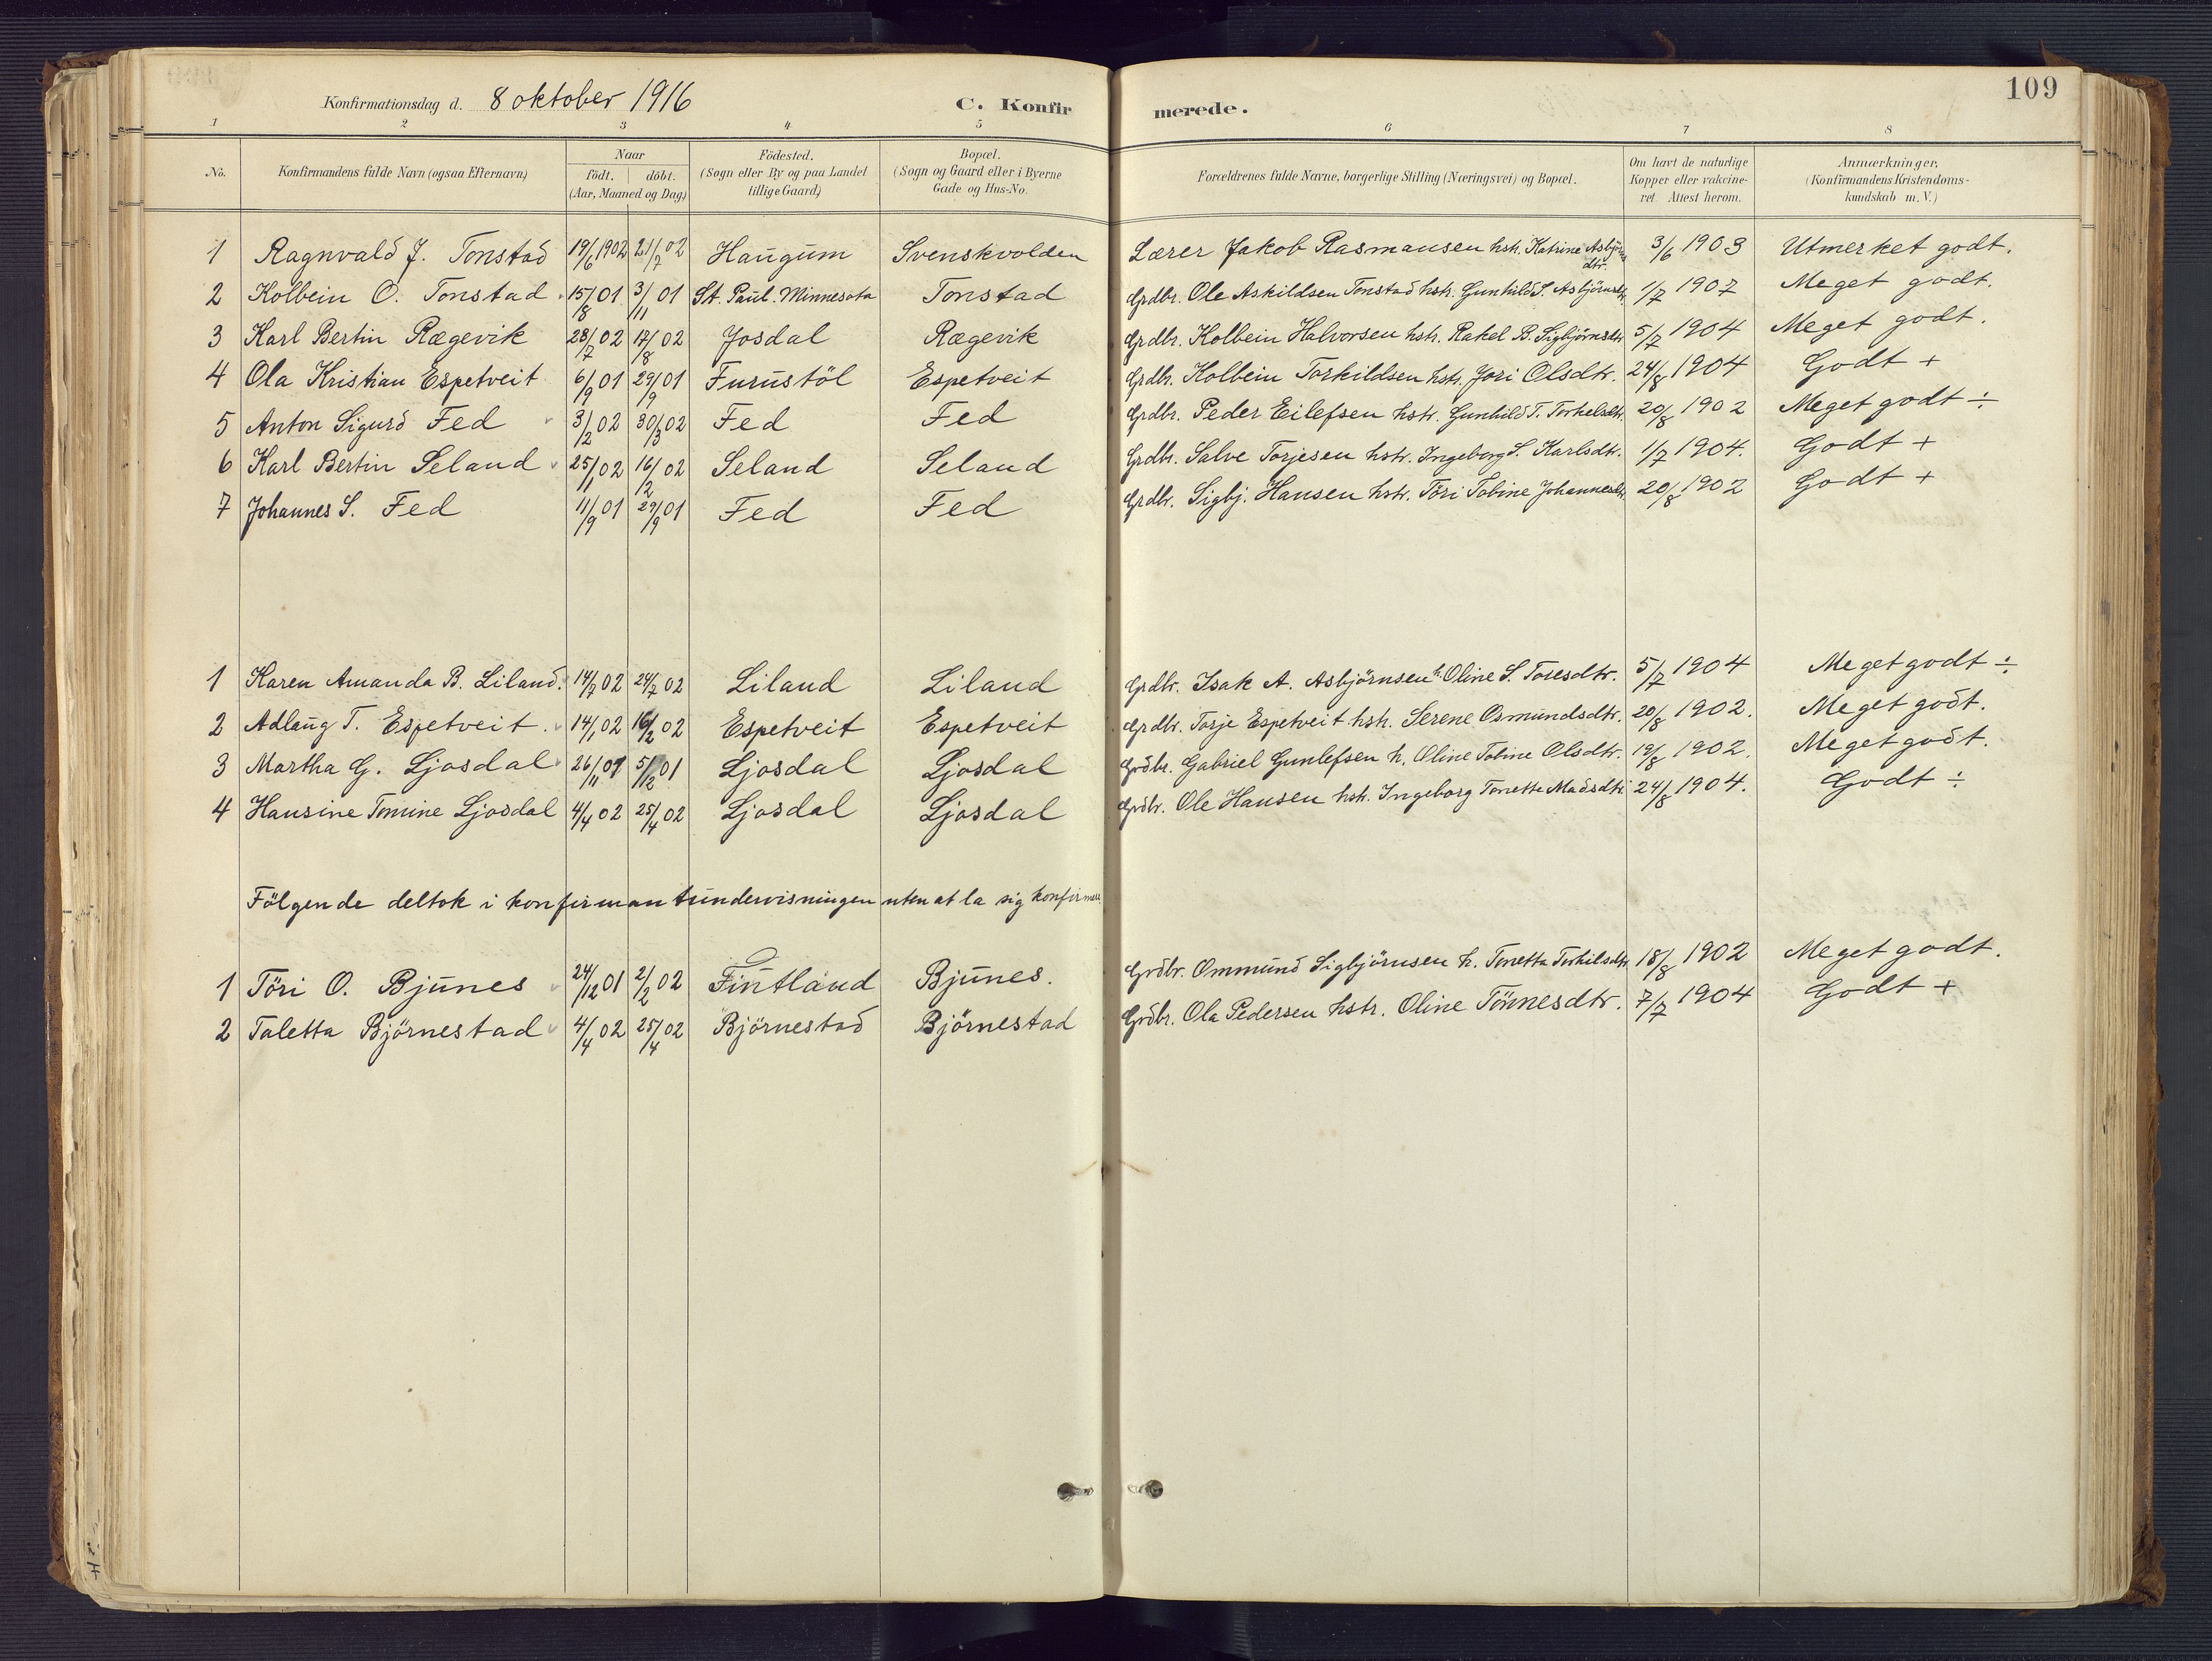 109
Konfirmationsdag d. 8 oktober 1916 C. Konfirmerede.
1 2 3 4 5 6 7 8
No. Konfirmandens fulde Navn (ogsaa Efternavn) Naar födt. döbt. (Aar, Maaned og Dag) Födested. (Sogn eller By og paa Landet tillige Gaard) Bopæl. (Sogn og Gaard eller i Byerne Gade og Hus-No. Forældrenes fulde Navne, borgerlige Stilling (Næringsvei) og Bopæl. Om havt de naturlige Kopper eller vakcineret Attest herom. Anmærkninger, (Konfirmandens Kristendomskundskab m. V.)
1 Ragnvald J. Tonstad 19/6 1902 21/7 02 Haugum Svenskvolden Lærer Jakob Rasmussen hstr. Katrine Asbjörnsdtr. 3/6 1903 Utmerket godt.
2 Kolbein O. Tonstad 15/8 01 3/11 01 St. Paul. Minnesota Tonstad Grdbr. Ole Askildsen Tonstad hstr. Gunhild S. Asbjörnsdtr. 1/7 1907 Meget godt.
3 Karl Bertin Rægevik 28/7 02 17/8 02 Josdal Rægevik Grdbr. Kolbein Halvorsen hstr. Rakel B. Sigbjörnsdtr. 5/7 1904 Meget godt.
4 Ola Kristian Espetveit 6/9 01 29/9 01 Furustöl Espetveit Grdbr. Kolbein Torkildsen hstr. Jori Olsdtr. 24/8 1904 Godt +
5 Anton Sigurd Fed 3/2 02 30/3 02 Fed Fed Grdbr. Peder Eilefsen hstr. Gunhild T. Torkelsdtr. 20/8 1902 Meget godt ÷
6 Karl Bertin Seland 25/1 02 16/2 02 Seland Seland Grdbr. Salve Torjesen hstr. Ingeborg S. Karlsdtr. 1/7 1904. Godt +
7 Johannes S. Fed 11/9 01 29/9 01 Fed Fed Grdbr. Sigbj. Hansen hstr. Töri Tobine Johannesdtr. 20/8 1902 Godt +
1 Karen Amanda B. Liland. 14/7 02 24/7 02 Liland Liland Grdbr. Isak A. Asbjörnsen h. Oline S. Tosesdtr. 5/7 1904 Meget godt ÷
2 Adlaug T. Espetveit. 14/1 02 16/2 02 Espetveit Espetveit Grdbr. Torje Espetveit hstr. Serene Osmundsdtr. 20/8 1902. Meget godt.
3 Martha G. Ljosdal 26/11 01 5/12 01 Ljosdal Ljosdal Grdbr. Gabriel Gunlefsen h. Oline Tobine Olsdtr. 19/8 1902. Meget godt.
4 Hansine Tomine Ljosdal 4/4 02 25/4 02 Ljosdal Ljosdal Grdbr. Ole Hansen hstr. Ingeborg Tonette Madsdtr 24/8 1904. Godt ÷
Fölgende deltok i konfirmantundervisningen uten at la sig konfirmere
1 Töri O. Bjunes 24/12 01 2/2 02 Fintland Bjunes. Grdbr. Ommund Sigbjörnsen h. Tonetta Torkilsdtr. 18/8 1902 Meget godt.
2 Taletta Björnestad 4/4 02 25/4 02 Björnestad Björnestad Grdbr. Ola Pedersen hstr. Oline Tönnesdtr. 7/7 1904 Godt +